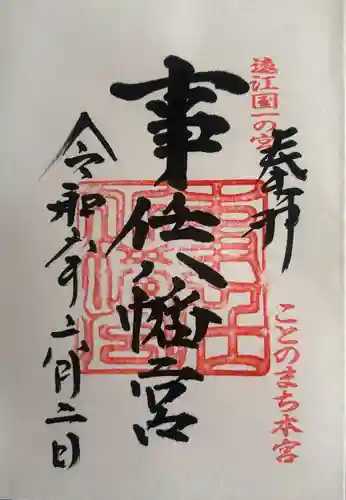 遠江国一の宮
奉拝
ことのまち本宮
事任八幡宮
令和六年二月二日